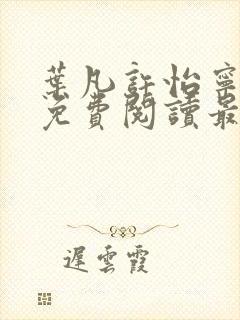 葉凡許怡寧
免費閱讀最
遲雲霞